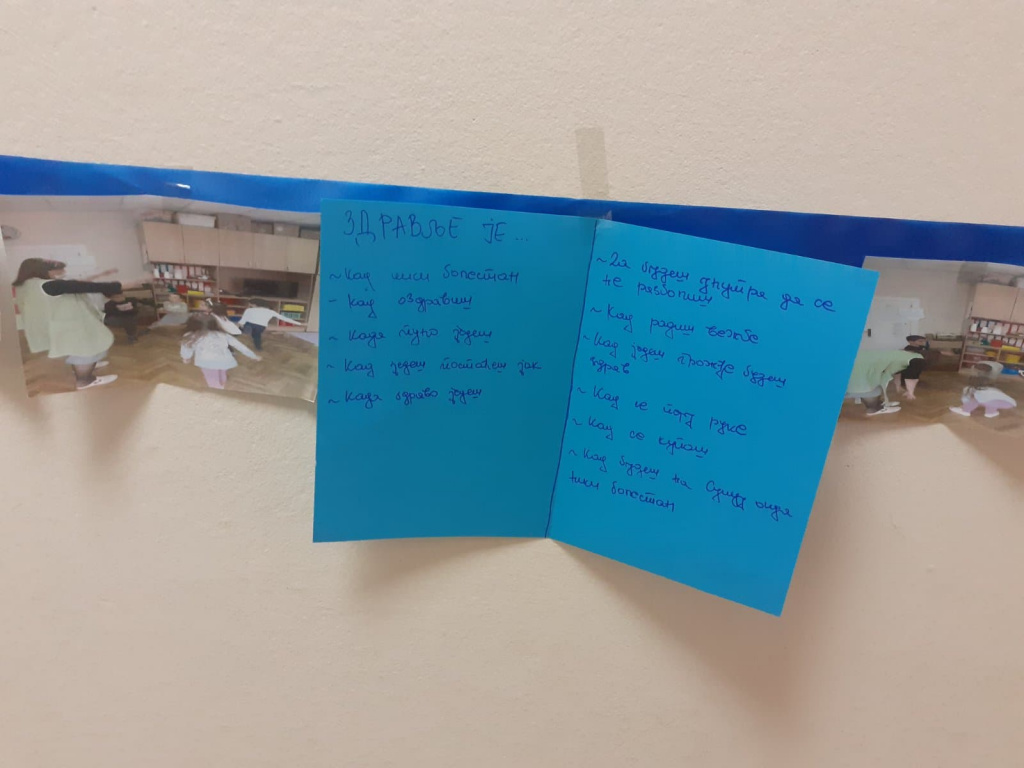 ЗДРАВЉЕ ЈЕ ...
~ Кад ниси болестан
- Кад оздравиш
~ Када пуно једеш
~ Кад једеш постајеш јак
~ Када здраво једеш
~ Да будеш унутра да се
не разболиш
~ Кад радиш вежбе
~ Кад једеш грожђе будеш
здрав
~ Кад се перу руке
~ Кад се купаш
~ Кад будеш на Сунцу онда
ниси болестан